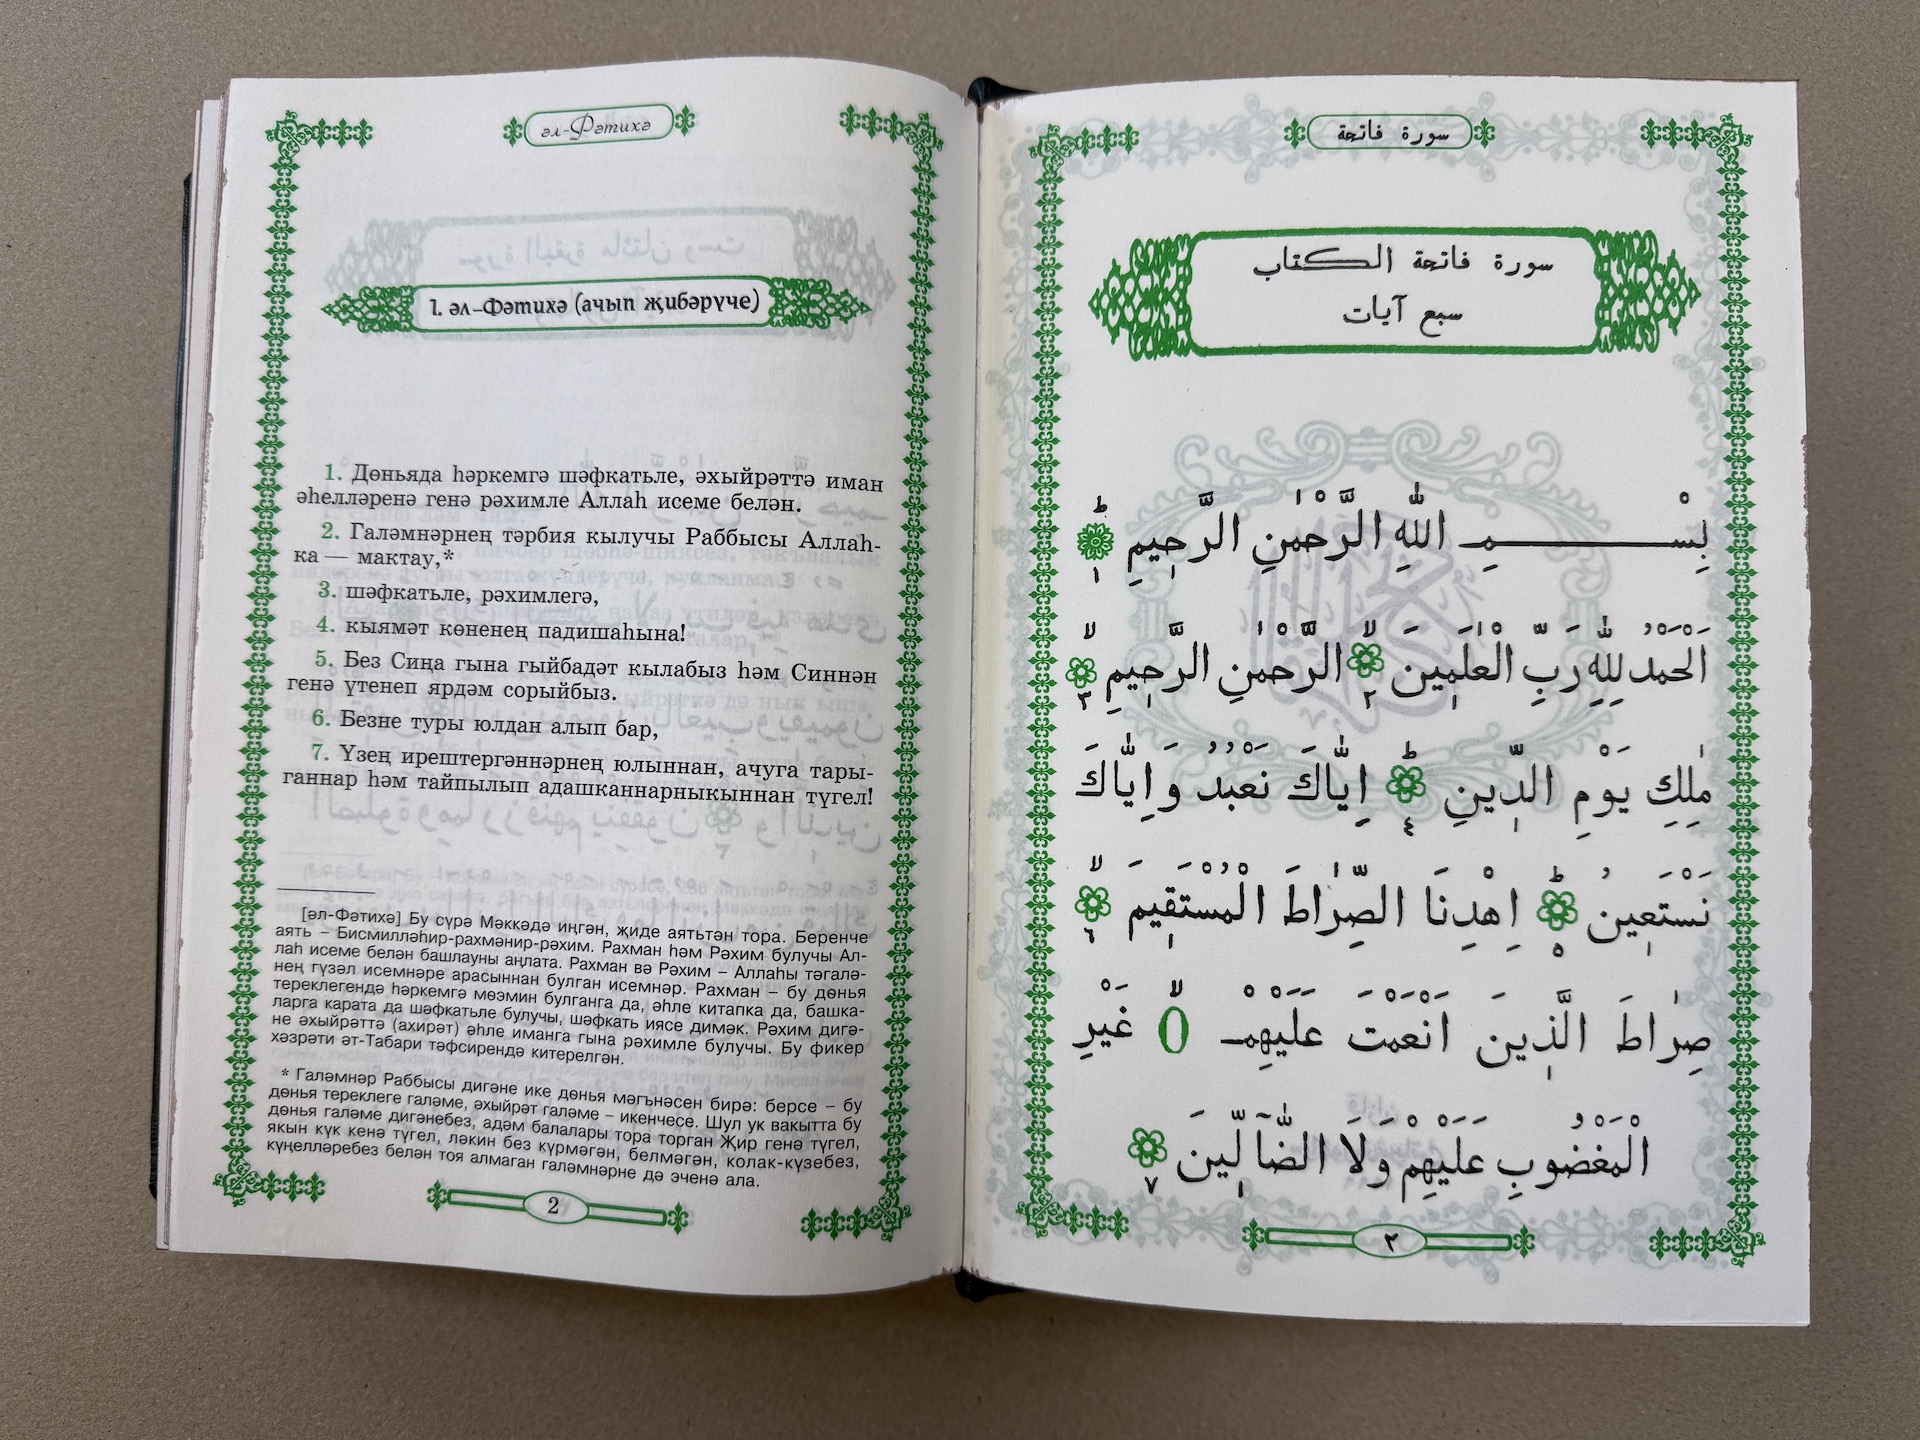 әл-Фәтихә
1. әл-Фәтихә (ачып җибәрүче)
1. Дөньяда һәркемгә шәфкатьле, әхыйрәттә иман
әһелләренә генә рәхимле Аллаһ исеме белән.
2. Галәмнәрнең тәрбия кылучы Раббысы Аллаһ-
ка — мактау,*
3. шәфкатьле, рәхимлегә,
4. кыямәт көненең падишаһына!
5. Без Сиңа гына гыйбадәт кылабыз һәм Синнән
генә үтенеп ярдәм сорыйбыз.
6. Безне туры юлдан алып бар,
7. Үзең ирештергәннәрнең юлыннан, ачуга тары-
ганнар һәм тайпылып адашканнарныкыннан түгел!
[әл-Фәтихә] Бу сүрә Мәккәдә иңгән, җиде аятьтән тора. Беренче
аять – Бисмилләһир-рахмәнир-рәхим. Рахман һәм Рәхим булучы Ал-
лаһ исеме белән башлауны аңлата. Рахман вә Рәхим – Аллаһы тәгалә-
нең гүзәл исемнәре арасыннан булган исемнәр. Рахман – бу дөнья
тереклегендә һәркемгә мөэмин булганга да, әһле китапка да, башка-
ларга карата да шәфкатьле булучы, шәфкать иясе димәк. Рәхим дигә-
не әхыйрәттә (ахирәт) әһле иманга гына рәхимле булучы. Бу фикер
хәзрәти әт-Табари тәфсирендә китерелгән.
* Галәмнәр Раббысы дигәне ике дөнья мәгънәсен бирә: берсе – бу
дөнья тереклеге галәме, әхыйрәт галәме – икенчесе. Шул ук вакытта бу
дөнья галәме дигәнебез, адәм балалары тора торган Җир генә түгел,
якын күк кенә түгел, ләкин без күрмәгән, белмәгән, колак-күзебез,
күңелләребез белән тоя алмаган галәмнәрне дә эченә ала.
2
سورة فاتحة
سورة فاتحة الكتاب
سبع آيات
بِسْــــــمِ اللّٰهِ الرَّحْمٰنِ الرَّحِيمِ ط ١
اَلْحَمْدُ لِلّٰهِ رَبِّ الْعٰلَمِينَ لا ٢ الرَّحْمٰنِ الرَّحِيمِ لا ٣
مٰلِكِ يَوْمِ الدِّينِ ط ٤ اِيَّاكَ نَعْبُدُ وَاِيَّاكَ
نَسْتَعِينُ ط ٥ اِهْدِنَا الصِّرَاطَ الْمُسْتَقِيمَ لا ٦
صِرَاطَ الَّذِينَ اَنْعَمْتَ عَلَيْهِمْ لا غَيْرِ
الْمَغْضُوبِ عَلَيْهِمْ وَلَا الضَّآلِّينَ ٧
٢